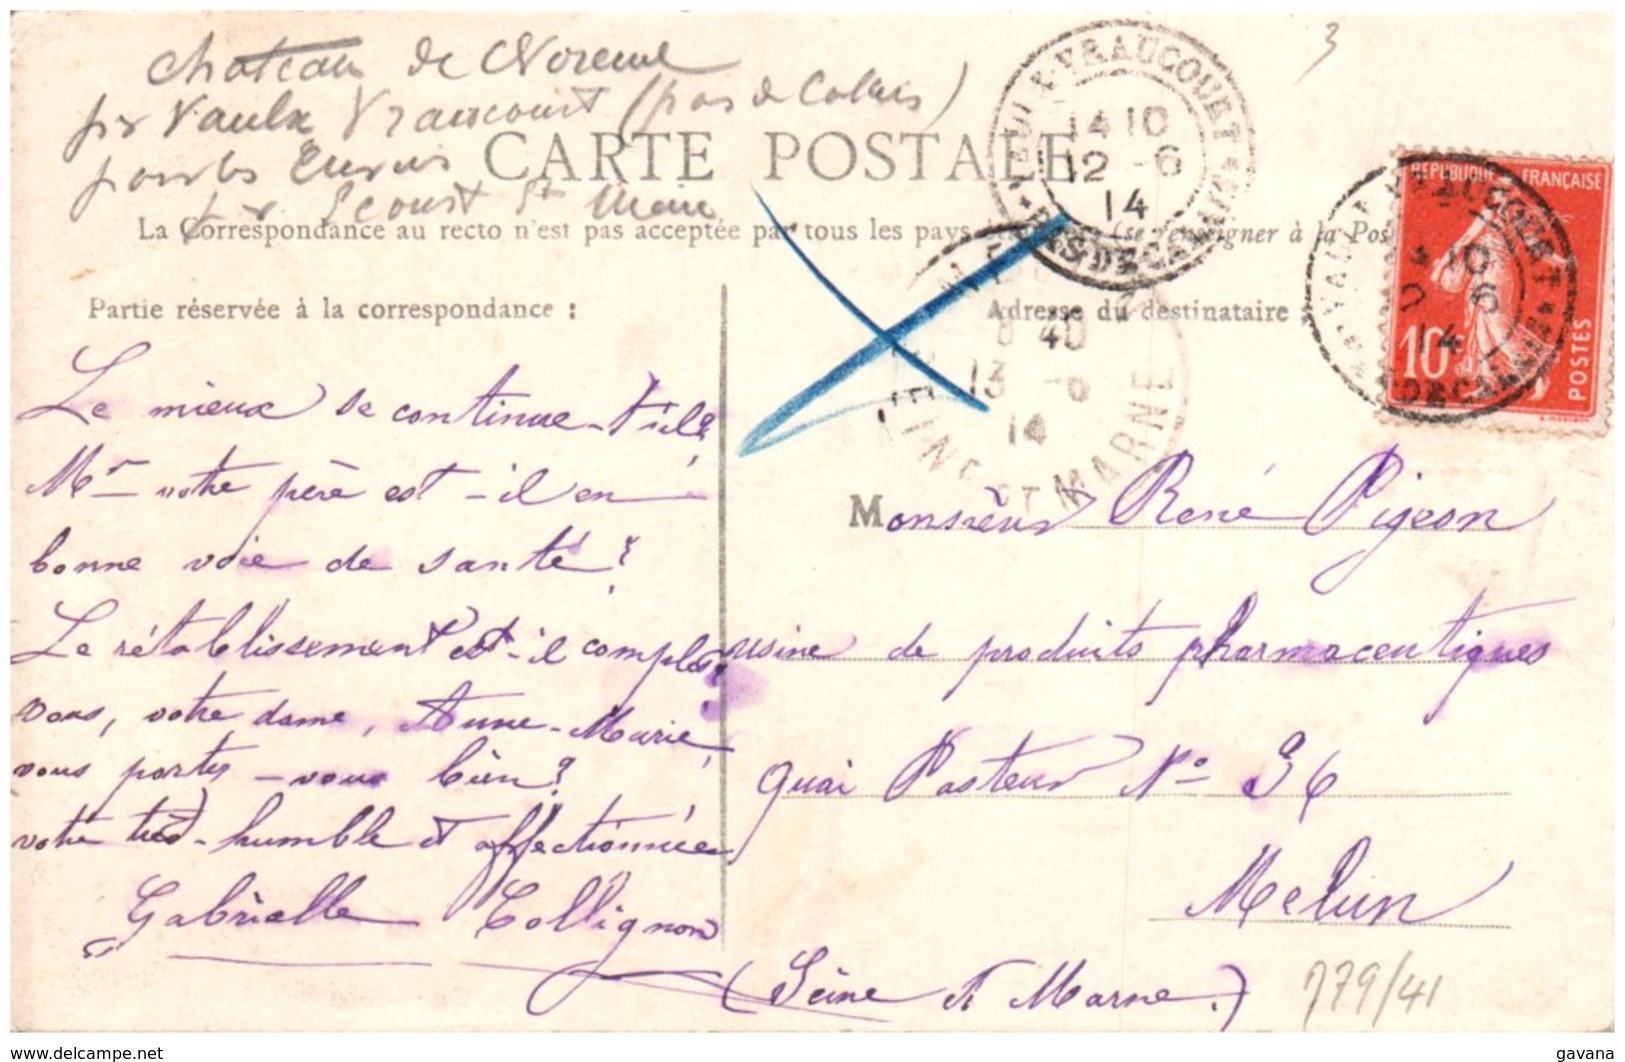 Chateau de Noreuil
par Vaulx Vraucourt (pas de Calais)
pour les
par Ecoust St Mein
3
CARTE POSTALE
La Correspondance au recto n'est pas acceptée par tous les pays (se renseigner à la Pos
Partie réservée à la correspondance :
Adresse du destinataire :
VAULX-VRAUCOURT
14 10
12 -6
14
PAS-DE-CALAIS
40
13 -6
14
SEINE ET MARNE
RÉPUBLIQUE FRANÇAISE
10
POSTES
Le mieux se continue-t'il?
Mr votre père est-il en
bonne voie de santé?
Le rétablissement est-il complet?
vous, votre dame, Anne-Marie,
vous portez-vous bien?
votre très-humble et affectionnée
Gabrielle Collignon
Monsieur René Pigeon
usine de produits pharmaceutiques
quai Pasteur No 36
Melun
(Seine et Marne.)
779/41
www.delcampe.net
gavana